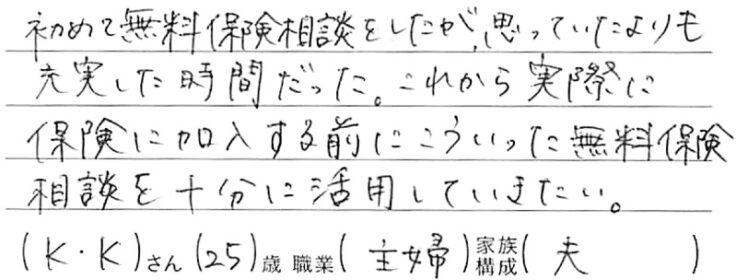 初めて無料保険相談をしたが、思っていたよりも
充実した時間だった。これから実際に
保険に加入する前にこういった無料保険
相談を十分に活用していきたい。
(K・K)さん(25)歳 職業(主婦)家族構成(夫)